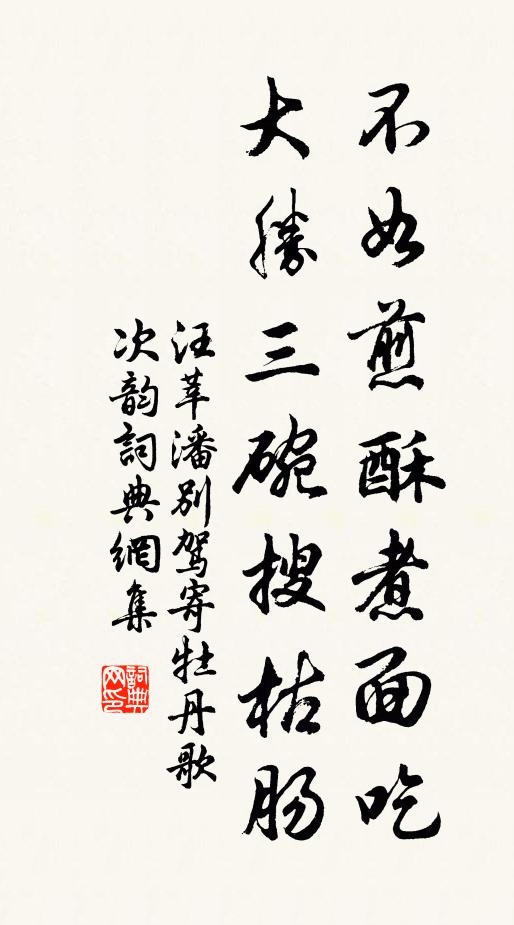 不如煎酥煮面吃
大勝三碗搜枯肠
汪莘潘別驾寄牡丹歌
次韵詞典網集
詞典
网印